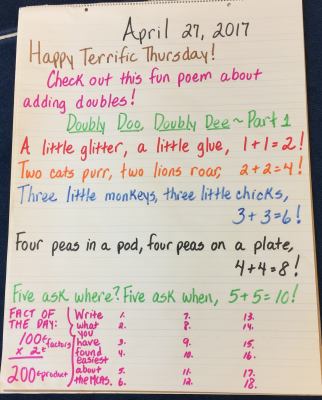 April 27, 2017
Happy Terrific Thursday!
Check out this fun poem about
adding doubles!
Doubly Doo, Doubly Dee ~ Part 1
A little glitter, a little glue, 1+1=2!
Two cats purr, two lions roar, 2+2=4!
Three little monkeys, three little chicks,
3+3=6!
Four peas in a pod, four peas on a plate,
4+4=8!
Five ask where? Five ask when, 5+5=10!
FACT OF
THE DAY:
100 ← factors
x 2 ←
200 ← product
Write
what
you
have
found
easiest
about
the MCAS.
1. 7. 13.
2. 8. 14.
3. 9. 15.
4. 10. 16.
5. 11. 17.
6. 12. 18.